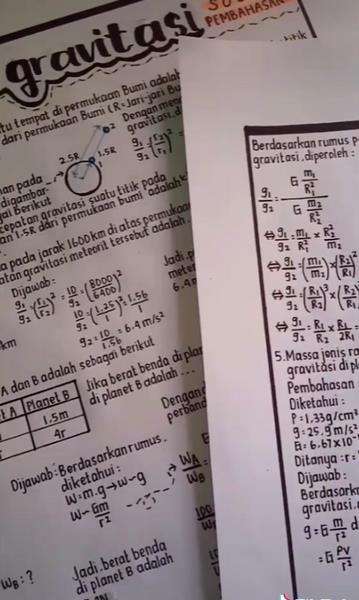 gravitasi
PEMBAHASAN
tu tempat di permukaan Bumi adalah
dari permukaan Bumi (R=Jari-jari Bu
2
2.5R
1.5R
1
Dengan men
gravitasi, d
g₁/g₂ = (r₂/r₁)² =
an pada
digambar-
gai berikut
cepatan gravitasi suatu titik pada
an 1.5R dari permukaan bumi adalah
pada jarak 1600km di atas permukaa
atan gravitasi meteorit tersebut adalah
Dijawab:
g₁/g₂ = (r₂/r₁)² = 10/g₂ = (8000/6400)²
10/g₂ = (1.25/1)² = 1.56/1
g₂ = 10/1.56 = 6.4 m/s²
Jadi, p
meter
6.4 m
km
A dan B adalah sebagai berikut
t A Planet B
1,5m
4r
Jika berat benda di plan
di planet B adalah ...
Dijawab: Berdasarkan rumus.
diketahui:
W=m.g→w~g
W~Gm/r²
Dengan
perband
W_A/W_B =
W_B: ?
Jadi, berat benda
di planet B adalah
Berdasarkan rumus p
gravitasi, diperoleh :
g₁/g₂ = (G m₁/R₁²)/(G m₂/R₂²)
⇔ g₁/g₂ = m₁/m₂ × R₂²/R₁²
⇔ g₁/g₂ = (m₁/m₂) × (R₂/R₁)²
⇔ g₁/g₂ = (R₁/R₂)³ × (R₂/R₁)²
⇔ g₁/g₂ = R₁/R₂ = R₁/2R₁
5. Massa jenis ra
gravitasi di pl
Pembahasan
Diketahui :
ρ = 1,33g/cm³
g = 25,9 m/s²
G = 6.67×10
Ditanya : r =
Dijawab :
Berdasarka
gravitasi.
g = G m/r² d
= G ρV/r²